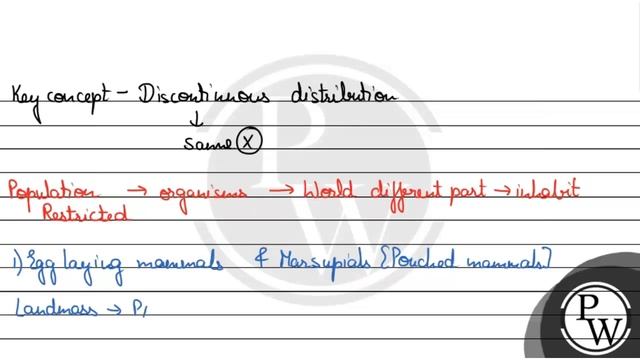 Key concept - Discontinuous distribution
↓
same Ⓧ
Population → organisms → World different part → inhabit
Restricted
i) Egg laying mammals & Marsupials {Pouched mammals}
Landmass → P
P
W
P
W